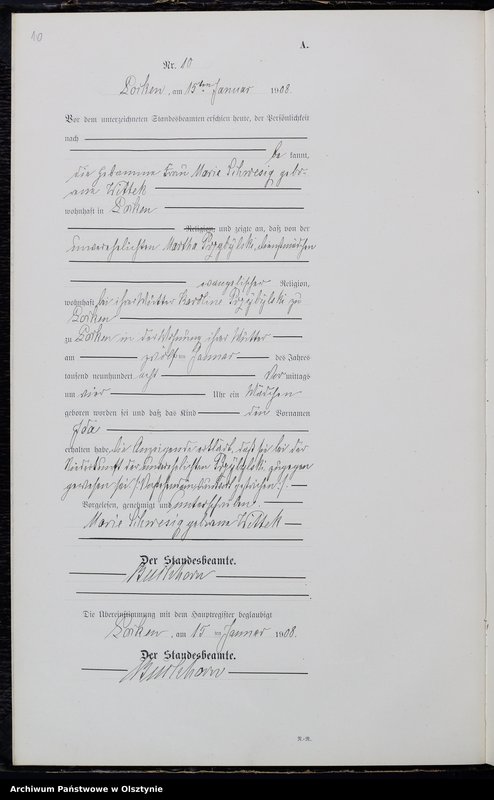 10
A.
Nr. 10
Dorken, am 15ten Januar 1908.
Vor dem unterzeichneten Standesbeamten erschien heute, der Persönlichkeit
nach
be kannt,
die Hebamme Frau Marie Schwesig gebo-
rene Wittek
wohnhaft in Dorken
Religion, und zeigte an, daß von der
unverehelichten Martha Przybylski, Dienstmädchen
evangelischer Religion,
wohnhaft bei ihrer Mutter Karoline Przybylski zu
Dorken
zu Dorken in der Wohnung ihrer Mutter
am zwölften Januar des Jahres
tausend neunhundert acht Vor mittags
um vier Uhr ein Mädchen
geboren worden sei und daß das Kind den Vornamen
Ida
erhalten habe. Die Anzeigende erklärt, daß sie bei der
Niederkunft der unverehelichten Przybylski zugegen
gewesen sei. gestrichen
Vorgelesen, genehmigt und unterschrieben
Marie Schwesig geborene Wittek
Der Standesbeamte.
Die Übereinstimmung mit dem Hauptregister beglaubigt
Dorken, am 15 ten Januar 1908.
Der Standesbeamte.
R.-R.
Archiwum Państwowe w Olsztynie